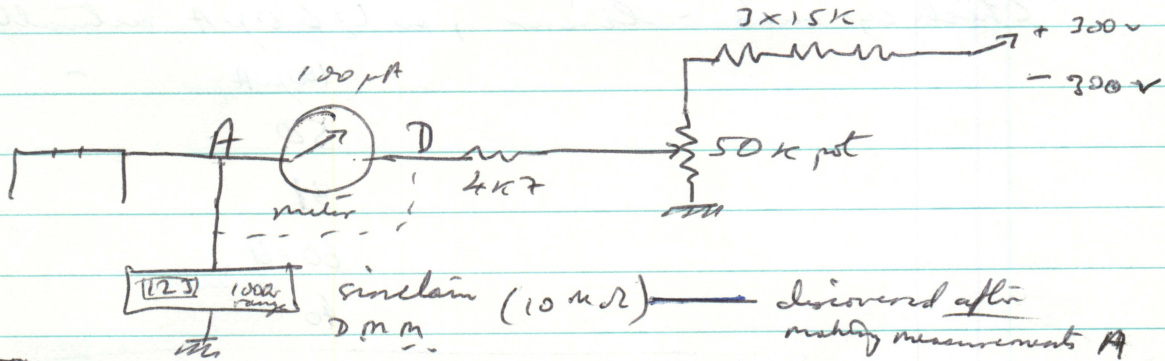 3 x 15K
+ 300 v
- 300 v
100 µA
A
D
50 K pot
4K7
meter
123
1000v range
sinclair (10 MΩ) — discovered after
D.M.M.
making measurements A